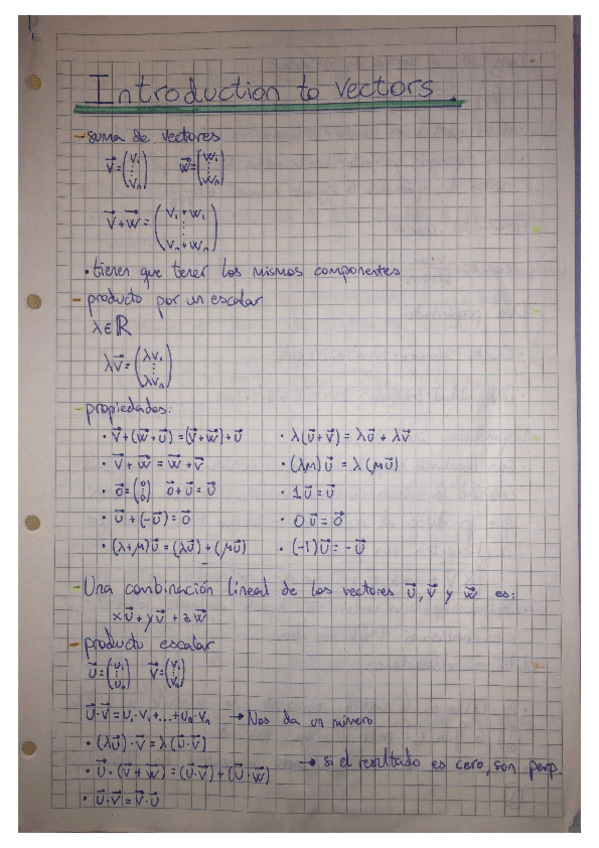 Introduction to vectors.
- suma de vectores
v⃗=(v₁ ⋮ vₙ) w⃗=(w₁ ⋮ wₙ)
v⃗+w⃗=(v₁+w₁ ⋮ vₙ+wₙ)
• tienen que tener los mismos componentes
- producto por un escalar
λ∈ℝ
λv⃗=(λv₁ ⋮ λvₙ)
- propiedades:
• v⃗+(w⃗+u⃗)=(v⃗+w⃗)+u⃗ • λ(u⃗+v⃗)=λu⃗+λv⃗
• v⃗+w⃗=w⃗+v⃗ • (λμ)u⃗=λ(μu⃗)
• 0⃗=(0 ⋮ 0) 0⃗+u⃗=u⃗ • 1u⃗=u⃗
• u⃗+(-u⃗)=0⃗ • 0u⃗=0⃗
• (λ+μ)u⃗=(λu⃗)+(μu⃗) • (-1)u⃗=-u⃗
- Una combinación lineal de los vectores u⃗, v⃗ y w⃗ es:
xu⃗+yv⃗+zw⃗
- producto escalar
u⃗=(u₁ ⋮ uₙ) v⃗=(v₁ ⋮ vₙ)
u⃗·v⃗=u₁·v₁+...+uₙ·vₙ → Nos da un número
• (λu⃗)·v⃗=λ(u⃗·v⃗)
• u⃗·(v⃗+w⃗)=(u⃗·v⃗)+(u⃗·w⃗) → si el resultado es cero, son perp.
• u⃗·v⃗=v⃗·u⃗